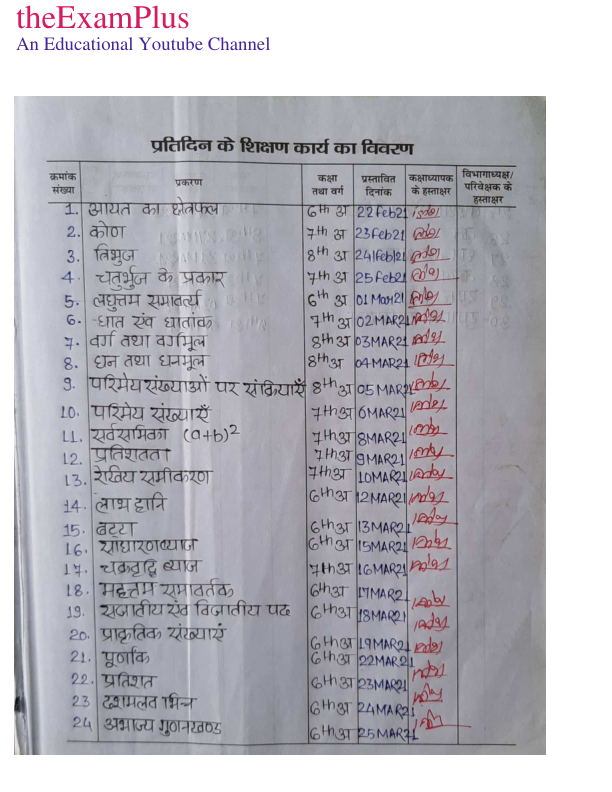 theExamPlus
An Educational Youtube Channel
प्रतिदिन के शिक्षण कार्य का विवरण
क्रमांक संख्या प्रकरण कक्षा तथा वर्ग प्रस्तावित दिनांक कक्षाध्यापक के हस्ताक्षर विभागाध्यक्ष/ परिवेक्षक के हस्ताक्षर
1. आयत का क्षेत्रफल 6th अ 22Feb21
2. कोण 7th अ 23Feb21
3. त्रिभुज 8th अ 24Feb21
4. चतुर्भुज के प्रकार 7th अ 25Feb21
5. लघुत्तम समावर्त्य 6th अ 01Mar21
6. घात एंव घातांक 7th अ 02MAR21
7. वर्ग तथा वर्गमूल 8th अ 03MAR21
8. घन तथा घनमूल 8th अ 04MAR21
9. परिमेय संख्याओं पर संक्रियाएँ 8th अ 05MAR21
10. परिमेय संख्याएँ 7th अ 6MAR21
11. सर्वसमिका (a+b)2 7th अ 8MAR21
12. प्रतिशतता 7th अ 9MAR21
13. रेखिय समीकरण 7th अ 10MAR21
14. लाभ हानि 6th अ 12MAR21
15. बट्टा 6th अ 13MAR21
16. साधारण ब्याज 6th अ 15MAR21
17. चक्रवृद्धि ब्याज 7th अ 16MAR21
18. महत्तम समावर्तक 6th अ 17MAR2
19. सजातीय एंव विजातीय पद 6th अ 18MAR21
20. प्राकृतिक संख्याएं 6th अ 19MAR21
21. पूर्णांक 6th अ 22MAR21
22. प्रतिशत 6th अ 23MAR21
23 दशमलव भिन्न 6th अ 24MAR21
24 अभाज्य गुणनखण्ड 6th अ 25MAR21